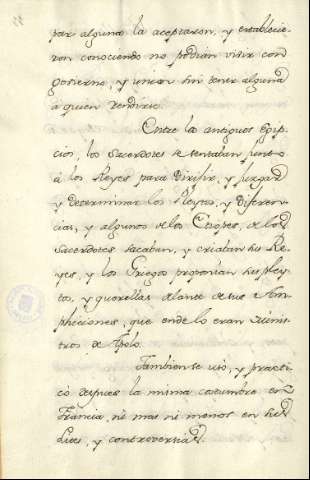 par algunos la aceptaron, y establecie
ron conociendo no podian vivir con
govierno, y union sin tener alguna
à quien rendirse.
Entre los antiguos Egip
cios, los Sacerdotes se sentaban junto
à los Reyes para dirigir, y juzgar
y determinar los Pleytos, y diferen
cias, y algunos de los Etiopes, de los
Sacerdotes sacaban, y criaban sus Re
yes, y los Griegos proponian sus pley
tos, y querellas delante de sus Am
phictiones, que ende lo eran Minis
tros de Apolo.
Tambien se usò, y practi
cò despues la misma costumbre en
Francia, ni mas ni menos en sus
Lites, y controversias.